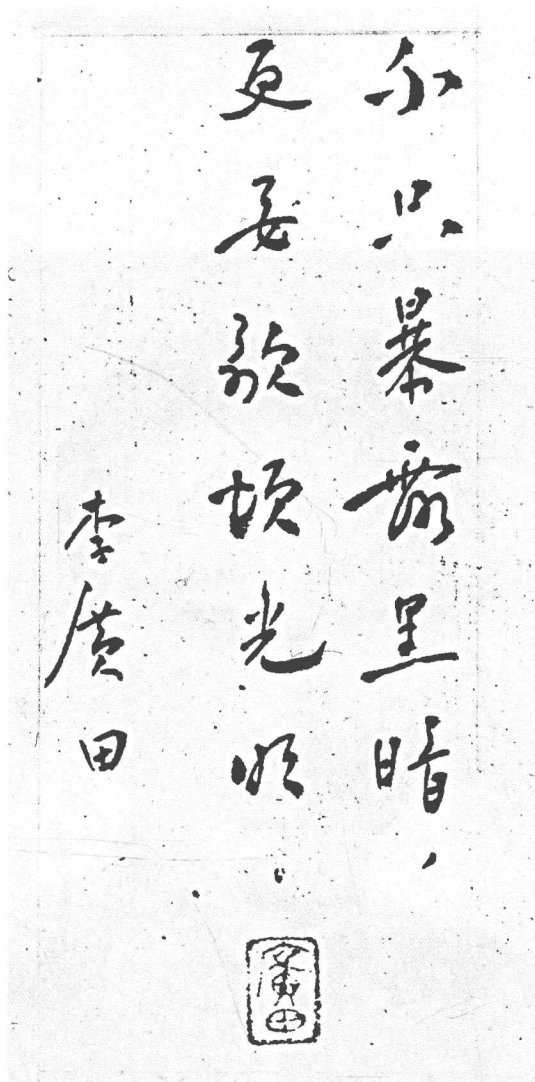 不只暴露黑暗，
更要歌颂光明。
李廣田
李廣田